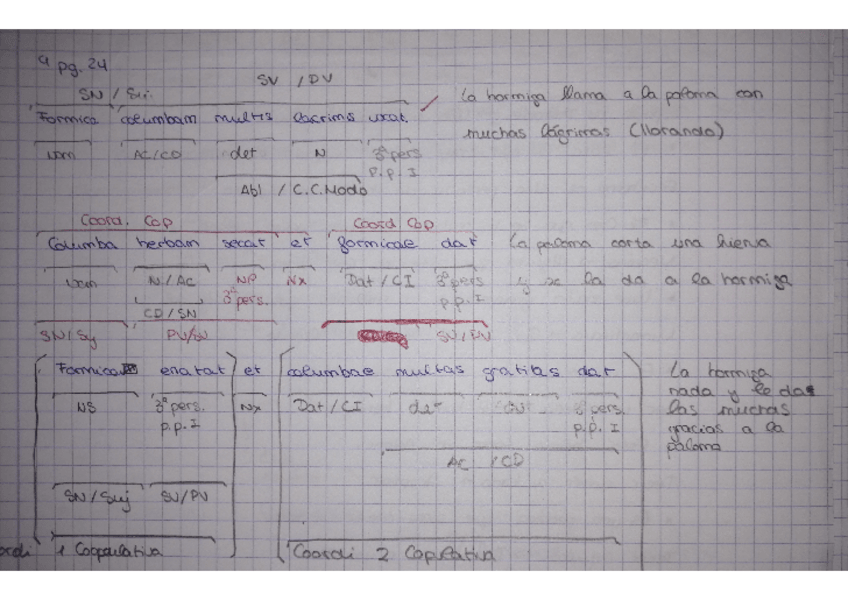 9 pg. 24
SN / Suj.
SV / PV
Formica columbam multis lacrimis vocat.
La hormiga llama a la paloma con
muchas lágrimas (llorando)
AC/CD det N 3ª pers
p.p. I
Abl / C.C.Modo
Coord. Cop Coord Cop
Columba herbam secat et formicae dat
La paloma corta una hierva
y se la da a la hormiga
N / AC NP Nx Dat / CI 3ª pers
3ª pers. p.p. I
CD / SN
SN / Suj PV/SV SV / PV
Formica enatat et columbae multas gratias dat
La hormiga
nada y le da
las muchas
gracias a la
paloma
NS 3ª pers. Nx Dat / CI det 3ª pers.
p.p. I p.p. I
AC / CD
SN / Suj SV / PV
Coordi 1 Copulativa
Coordi 2 Copulativa